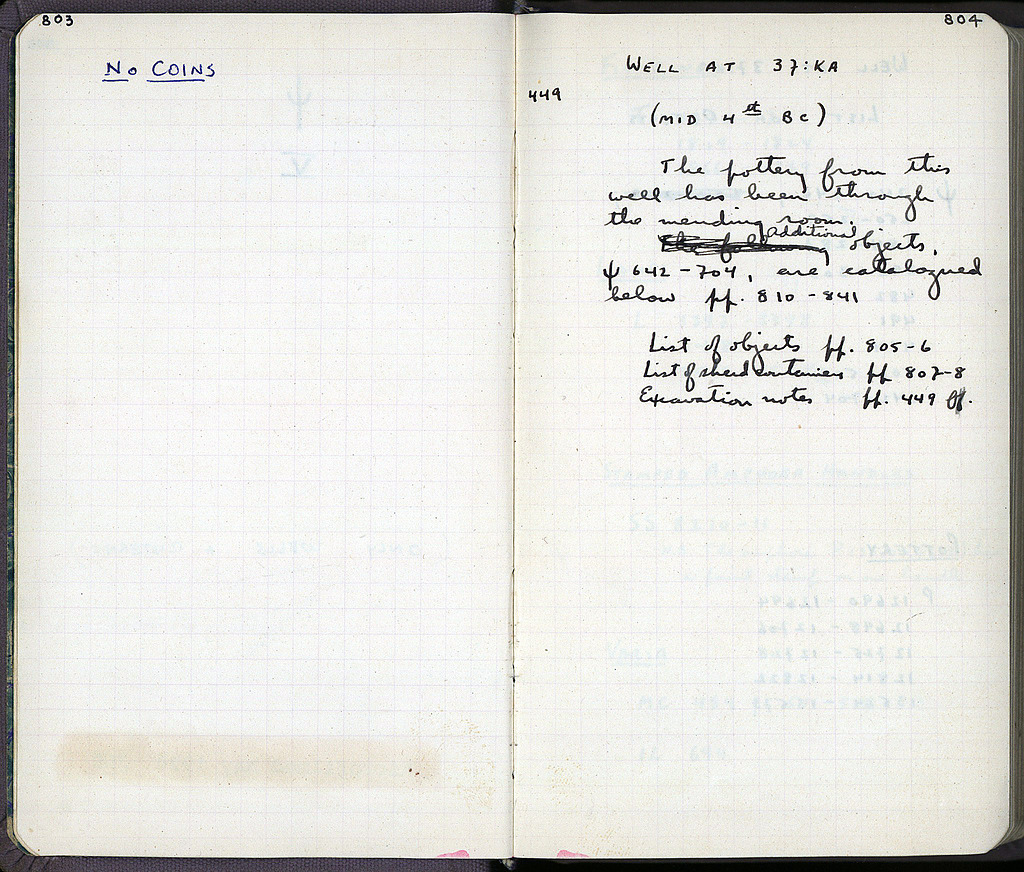 803
No COINS
804
WELL AT 37:KA
449
(MID 4st BC)
The pottery from this
well has been through
the mending room.
The following additional objects,
ψ 642-704, are catalogued
below pp. 810-841
List of objects pp. 805-6
List of sherd containers pp 807-8
Excavation notes pp. 449 ff.